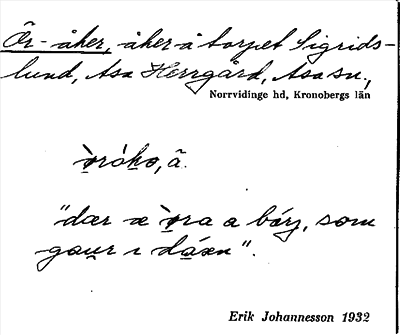 Ör-åker, åker å torpet Sigrids-
lund, Asa Herrgård, Asa sn.,
Norrvidinge hd, Kronobergs län
"dær æ ǫ̀ra a bǽrj, som
gau̯r ı dǡæn".
Erik Johannesson 1932